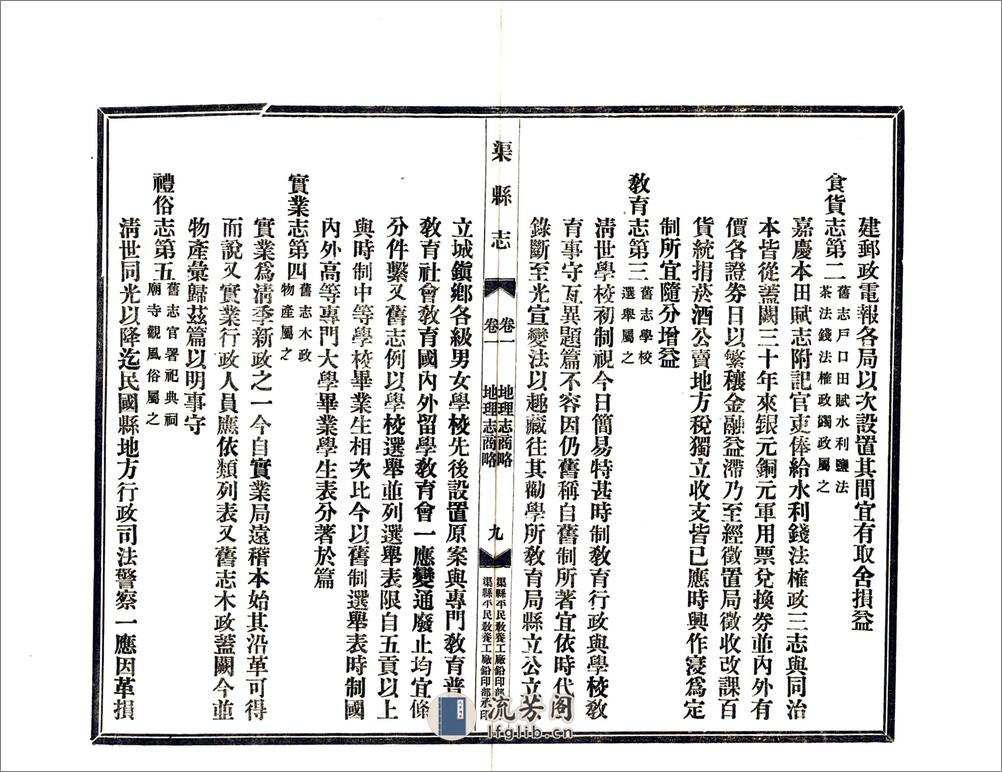 建郵政電報各局以次設置其間宜有取舍損益
食貨志第二
舊志戶口田賦水利鹽法
茶法錢法榷政蠲政屬之
嘉慶本田賦志附記官吏俸給水利錢法榷政三志與同治
本皆從蓋闕三十年來銀元銅元軍用票兌換券並內外有
價各證券日以繁穰金融益滯乃至經徵置局徵收改課百
貨統捐菸酒公賣地方稅獨立收支皆已應時興作寖爲定
制所宜隨分增益
教育志第三
舊志學校
選舉屬之
淸世學校初制視今日簡易特甚時制教育行政與學校教
育事守亙異題篇不容因仍舊稱自舊制所著宜依時代
錄斷至光宣變法以趣藏往其勸學所教育局縣立公立
渠縣志
卷一
地理志商略
九
渠縣平民教養工廠鉛印部承印
卷一
地理志商略
渠縣平民教養工廠鉛印部承印
立城鎭鄉各級男女學校先後設置原案與專門教育普
教育社會教育國內外留學教育會一應變通廢止均宜條
分件繫又舊志例以學校選舉並列選舉表限自五貢以上
與時制中等學校畢業生相次比今以舊制選舉表時制國
內外高等專門大學畢業學生表分著於篇
實業志第四
舊志木政
物產屬之
實業爲淸季新政之一今自實業局遠稽本始其沿革可得
而說又實業行政人員應依類列表又舊志木政蓋闕今並
物產彙歸茲篇以明事守
禮俗志第五
舊志官署祀典祠
廟寺觀風俗屬之
淸世同光以降迄民國縣地方行政司法警察一應因革損
流芳阁
lfglib.cn